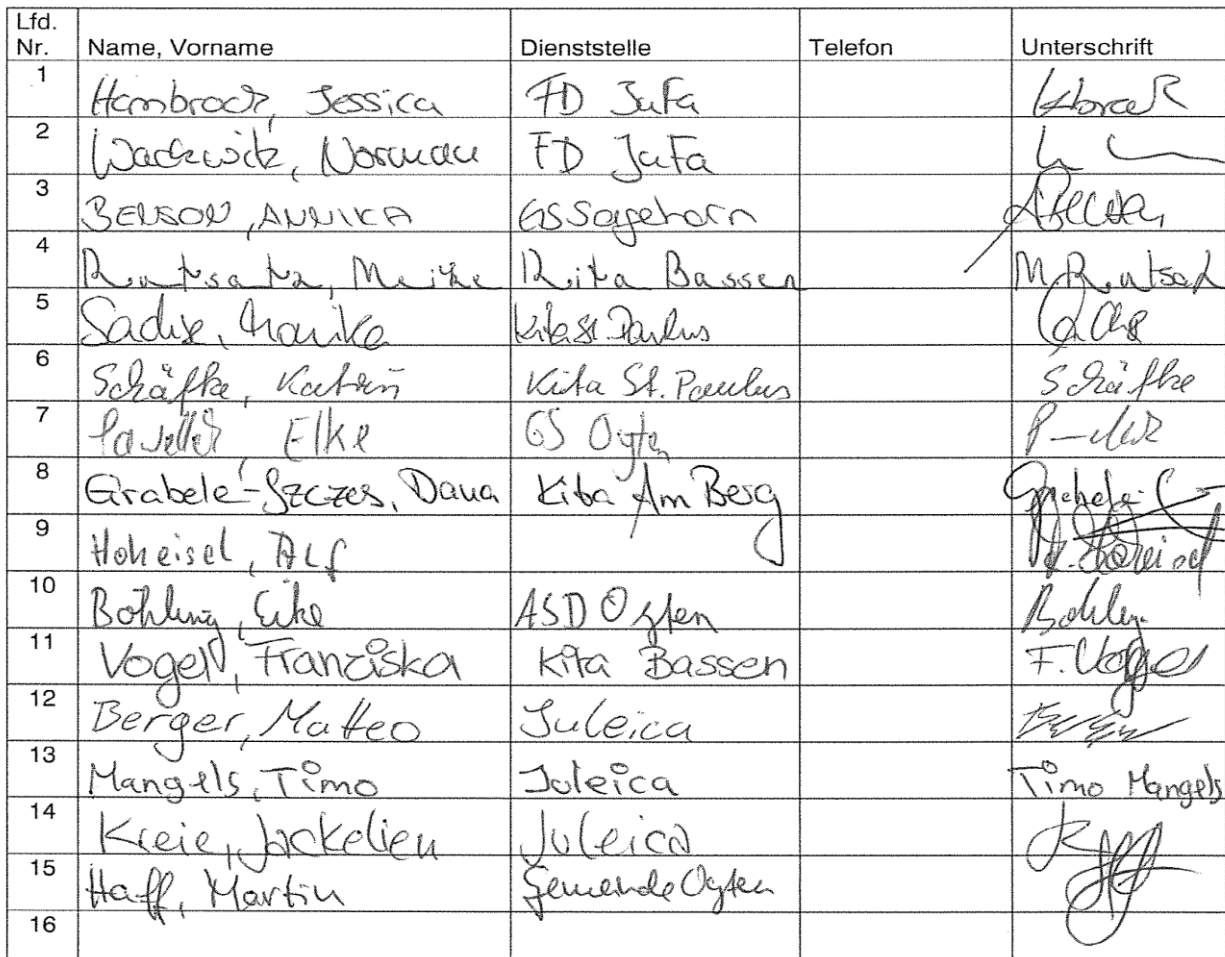 Lfd. Nr. Name, Vorname Dienststelle Telefon Unterschrift
1 Hambrock, Jessica FD JuFa
2 Wackwitz, Norman FD JuFa
3 BENSON, ANNIKA GS Sagehorn
4 Rutsatz, Meike Kita Bassen M. Rutsatz
5 Sachse, Monika Kita St. Paulus
6 Schäfke, Katrin Kita St. Paulus Schäfke
7 Elke GS Oyten
8 Grabele-Szczes, Dana Kita Am Berg
9 Hoheisel, Alf A. Hoheisel
10 Böhling, Eike ASD Oyten
11 Vogel, Franziska Kita Bassen F. Vogel
12 Berger, Matteo Juleica
13 Mangels, Timo Juleica Timo Mangels
14 Kreie, Jackelien Juleica
15 Haff, Martin Gemeinde Oyten
16